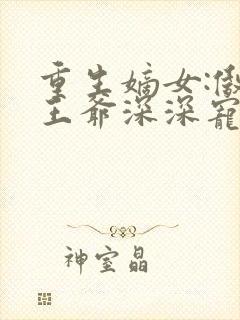 重生嫡女:傲
王爷深深宠
神室晶